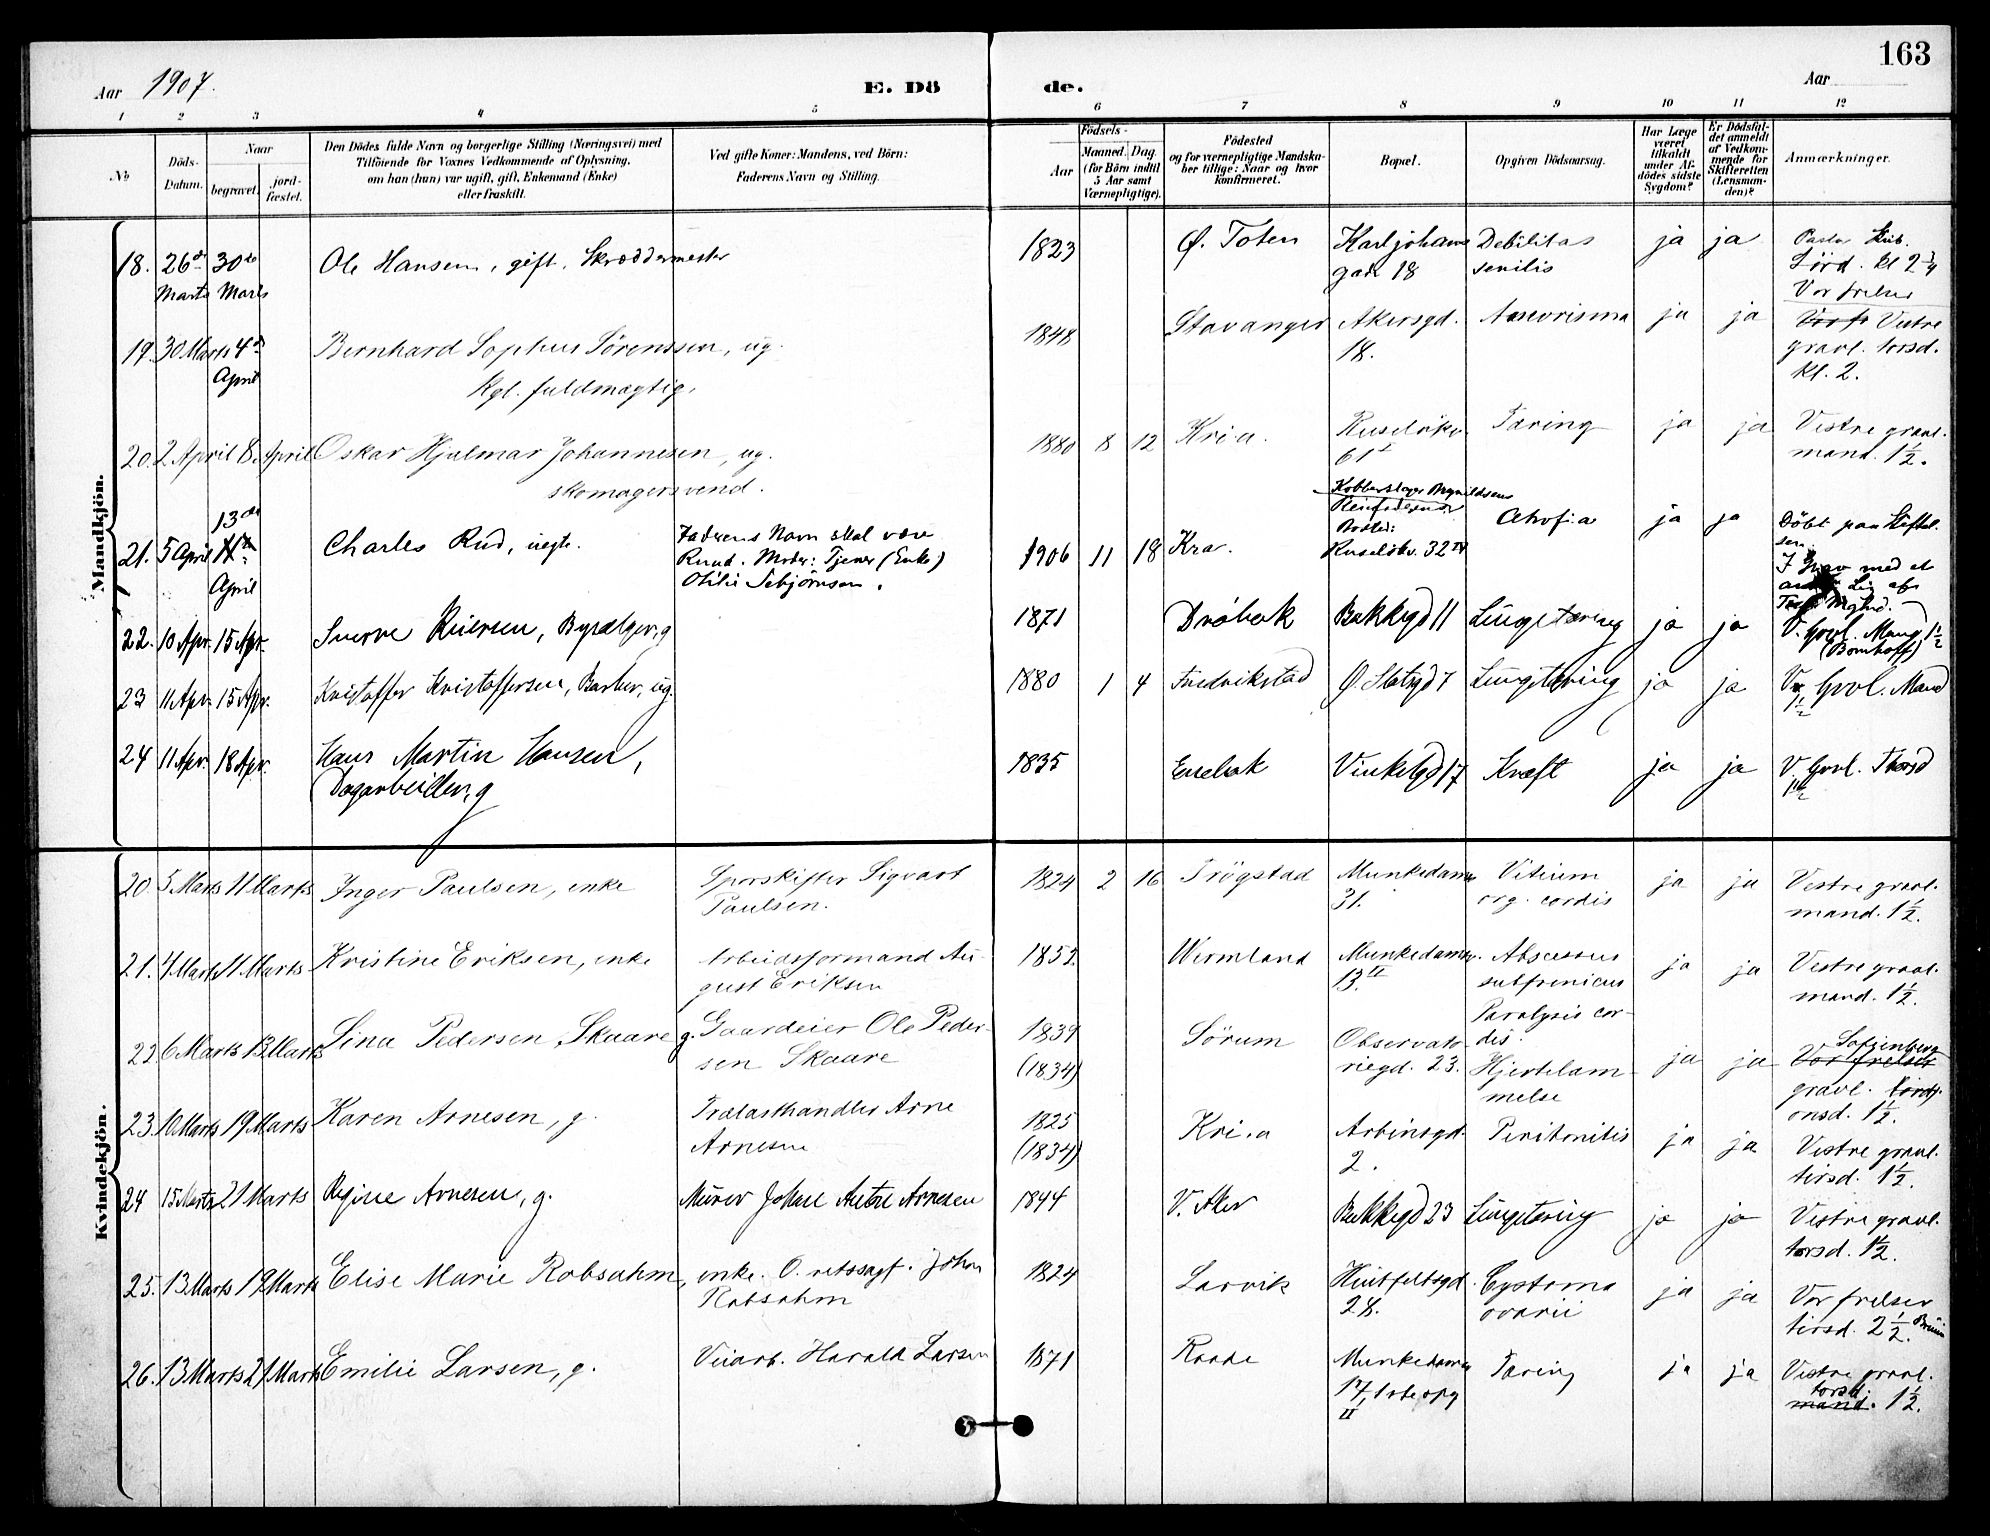 163
Aar 1907.
E. Dö de.
Aar
1 2 3 4 5 6 7 8 9 10 11 12
No
Döds-Datum.
Naar
begravet.
jord-fæstet.
Den Dödes fulde Navn og borgerlige Stilling (Næringsvei) med
Tilföiende for Voxnes Vedkommende af Oplysning,
om han (hun) var ugift, gift, Enkemand (Enke)
eller fraskilt.
Ved gifte Koner: Mandens, ved Börn:
Faderens Navn og Stilling.
Födsels-
Aar
Maaned. Dag.
(for Börn indtil
5 Aar samt
Værnepligtige).
Födested
og for værnepligtige Mandska-
ber tillige: Naar og hvor
konfirmeret.
Bopæl.
Opgiven Dödsaarsag.
Har Læge
været
tilkaldt
under Af-
dödes sidste
Sygdom?
Er Dödsfal-
det anmeldt
af Vedkom-
mende for
Skifteretten
(Lensman-
den)?
Anmærkninger.
Mandkjön.
18. 26de Marts 30te Marts Ole Hansen, gift, Skræddermester 1823 Ø. Toten Karl johans gade 18 Debilitas senilis ja ja
Lörd. kl 2 3/4
Vor frelser
19. 30 Marts 4de April Bernhard Sophus Sörenssen, ug. 1848 Stavanger Akersgd. 18. ja ja Vestre
kgl. fuldmægtig.
gravl. torsd.
kl. 2.
20. 2 April 8. April Oskar Hjalmar Johannesen, ug. 1880 8 12 Kri.a. Ruselökv. 61 I Tæring ja ja Vestre gravl.
skomagersvend.
mand. 1½.
21. 5 April 13de 11te April Charles Rud, uegte. Faderens Navn skal være
Ruud. Moder: Tjener (Enke)
Otilie Tebjörnsen.
1906 11 18 Kra. Kobberslager
Bosted:
Ruselökv. 32 IV Atrofia ja ja Döbt paa Stiftel-
sen.
I Grav med et
Lig af
22. 10 Apr. 15 Apr. Sverre Reiersen, Bysælger, g 1871 Dröbak Bakkegd 11 Lungetæring ja ja V. Grvl. Mand 1½
(Bomhoff)
23 11 Apr. 15 Apr. Kristoffer Kristoffersen, Barber, ug. 1880 1 4 Fredrikstad Ø. Slotsgd 7 Lungetæring ja ja V. Grvl. Mand
1½
24 11 Apr. 18 Apr. Hans Martin Hansen, 1835 Enebak Vinkelgd 17 Kræft ja ja V. Grvl. Thorsd
Dagarbeider, g
1½
Kvindekjön.
20. 5 Marts 11 Marts Inger Paulsen, enke Sporskifter Sigvart
Paulsen.
1824 2 16 Trögstad Munkedamsv 31. Vitium
org. cordis ja ja Vestre gravl.
mand. 1½.
21. 4 Marts 11 Marts Kristine Eriksen, enke Arbeidsformand Au-
gust Eriksen
1855. Wermland Munkedamsv. 13. II Abscessus
subfrenicus ja ja Vestre gravl.
mand. 1½.
22. 6 Marts 13 Marts Sina Pedersen Skaare g. Gaardeier Ole Peder-
sen Skaare
1839
(1834)
Sörum Observato-
riegd. 23. Paralysis cor-
dis.
Hjertelam-
melse ja ja Sofienberg
Vor frelser
gravl. torsd.
onsd. 1½.
23. 10 Marts 19 Marts Karen Arnesen, g. Trælasthandler Arne
Arnesen
1825
(1834)
Kri.a Arbinsgd. 2. Peritonitis ja ja Vestre gravl.
tirsd. 1½.
24 15 Marts 21 Marts Regine Arnesen, g. Murer Johan Anton Arnesen 1844 V. Aker Bakkegd 23 Lungetæring ja ja Vestre gravl.
torsd. 1½.
25. 13 Marts 19 Marts Elise Marie Robsahm, enke. O. retssagf. Johan
Robsahm
1824 Larvik Huitfeltsgd. 28. Cystoma
ovarii ja ja Vor frelser
tirsd. 2½.
26. 13 Marts 21 Marts Emilie Larsen, g. Veiarb. Harald Larsen 1871 Raade Munkedamsv 17, 1ste opg
II Tæring ja ja Vestre gravl.
torsd.
mand. 1½.